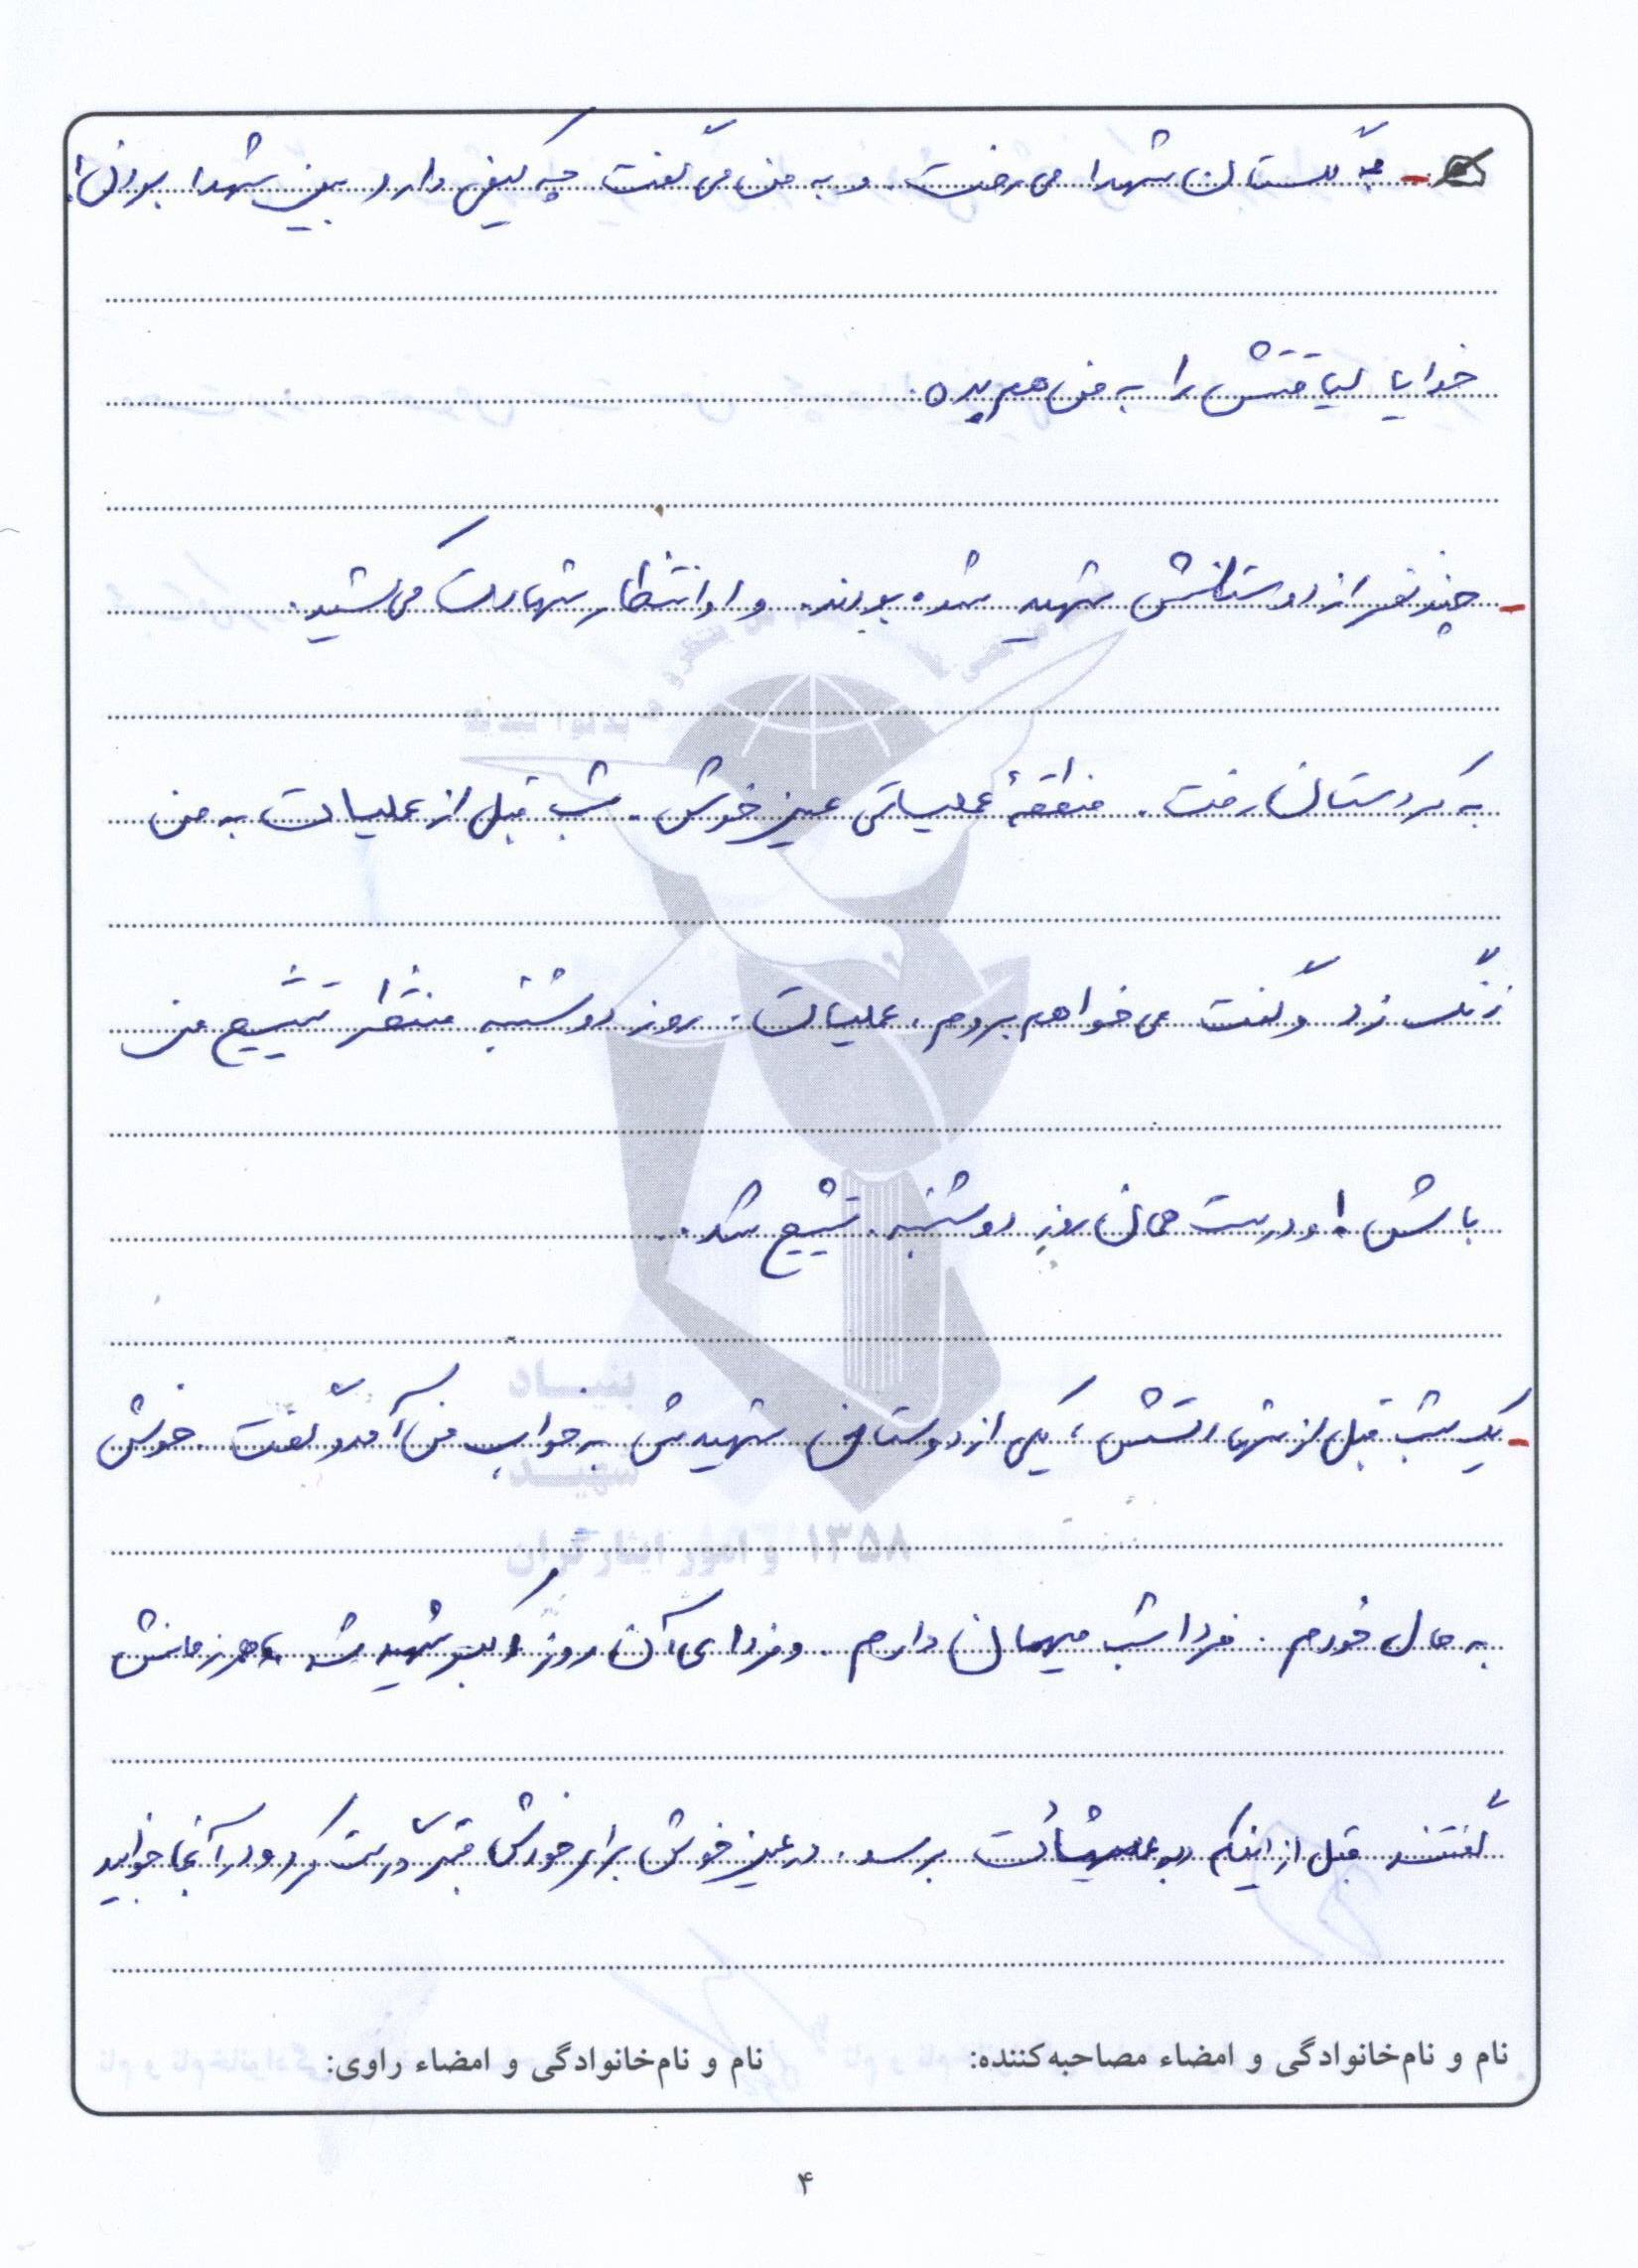 - به گلستان شهدا می رفت. و به من می گفت چه کیفی دارد بین شهدا بودن!
خدایا لیاقتش را به من هم بده.
- چند نفر از دوستانش شهید شده بودند. و او انتظار شهادت می کشید.
به کردستان رفت. منطقهٔ عملیاتی عین خوش. شب قبل از عملیات به من
زنگ زد و گفت می خواهم بروم. عملیات. روز دوشنبه منتظر تشییع من
باش! او درست همان روز دوشنبه. تشییع شد.
- یک شب قبل از شهادتش، یکی از دوستان شهیدش به خواب من آمد و گفت. خوش
به حال خودم. فردا شب میهمان دارم. و فردای آن روز اکبر شهید شد. همرزمانش
گفتند قبل از اینکه به شهادت برسد. در عین خوش برای خودش قبر درست کرد و در آنجا خوابید
نام و نام‌خانوادگی و امضاء مصاحبه‌کننده: نام و نام‌خانوادگی و امضاء راوی:
۴
بنیاد
شهید
و امور ایثارگران ۱۳۵۸